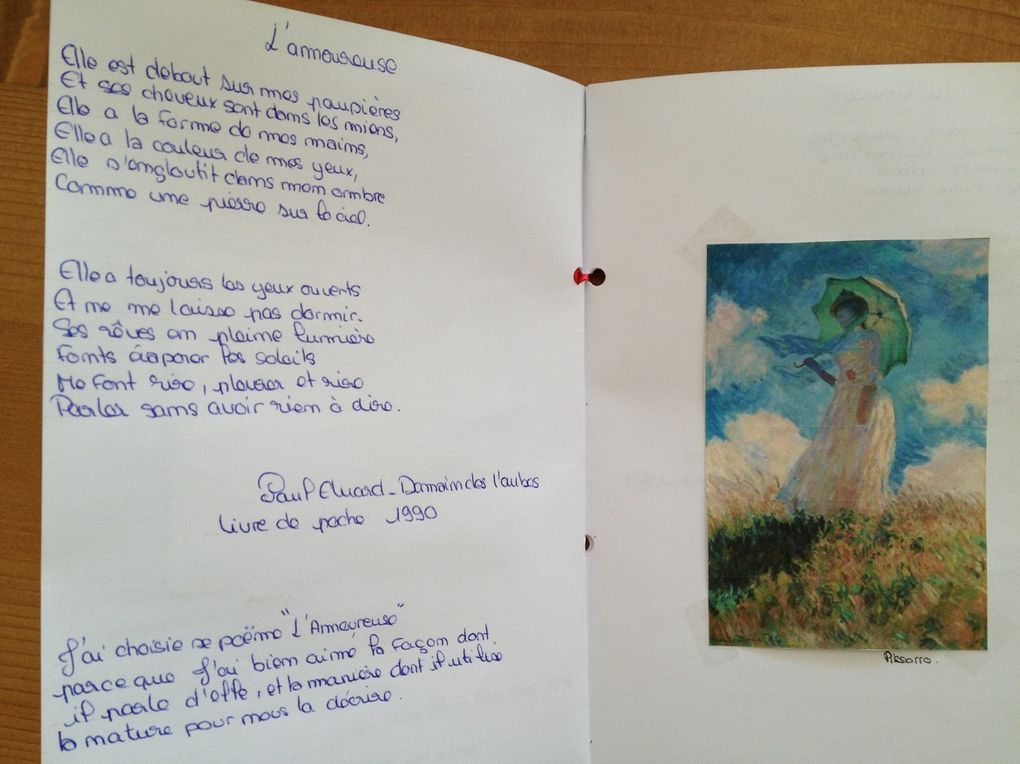 L'amoureuse
Elle est debout sur mes paupières
Et ses cheveux sont dans les miens,
Elle a la forme de mes mains,
Elle a la couleur de mes yeux,
Elle s'engloutit dans mon ombre
Comme une pierre sur le ciel.
Elle a toujours les yeux ouverts
Et ne me laisse pas dormir.
Ses rêves en pleine lumière
Fonts évaporer les soleils
Me font rire, pleurer et rire
Parler sans avoir rien à dire.
Paul Eluard - Demain des l'aubes
Livre de poche 1990
J'ai choisie se poëme "L'Amoureuse"
parce que J'ai bien aimé la façon dont.
il parle d'elle, et la manière dont il utilise
la nature pour nous la décrire.
Pissarro.